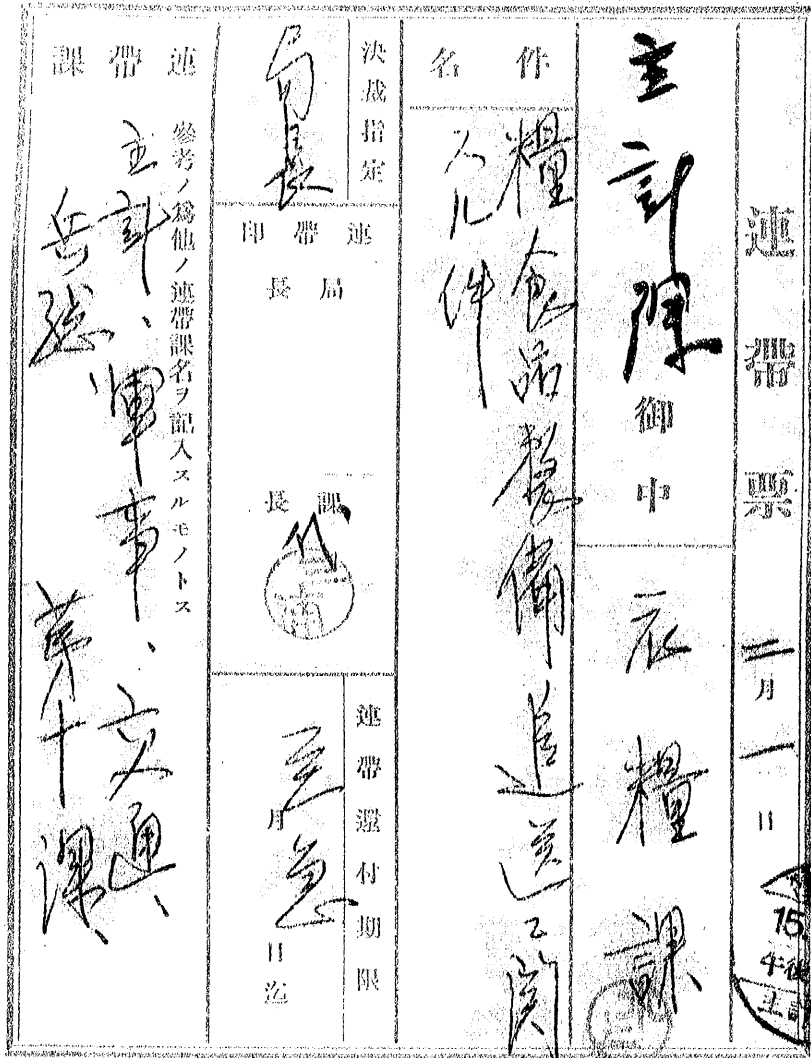 連帶票 二月一日
15. 午後 主計
主計課 御中
衣糧課
件名
糧食品整備追送ニ関
スル件
決裁指定
局長
連帶印
局長
課長
南
連帶還付期限
至急
月 日迄
連帶課
參考ノ爲他ノ連帶課名ヲ記入スルモノトス
主計、軍事、交通、
兵站 第十課、